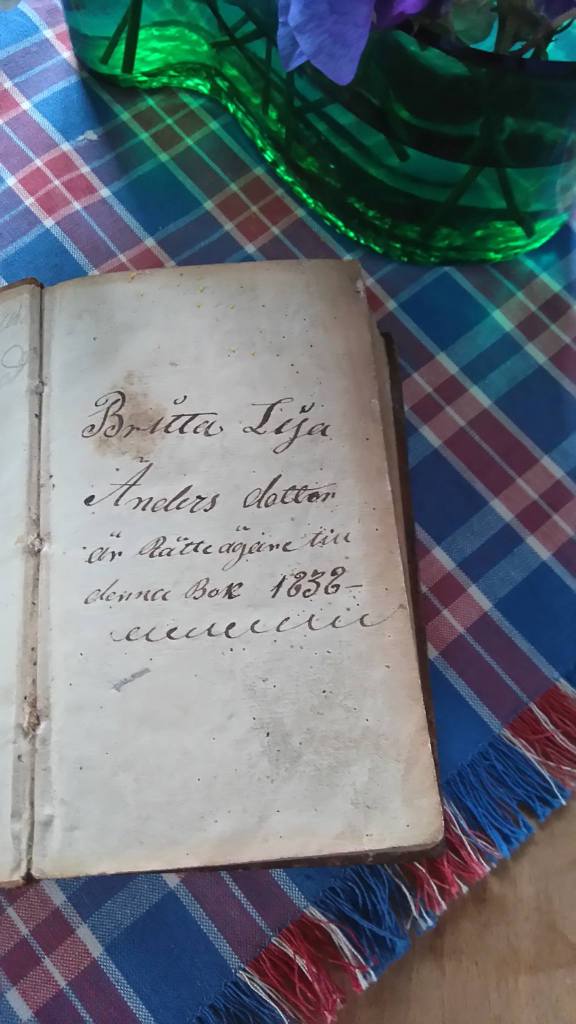 Britta Lisa
Anders dotter
är Rätte ägare till
denna Bok 1838